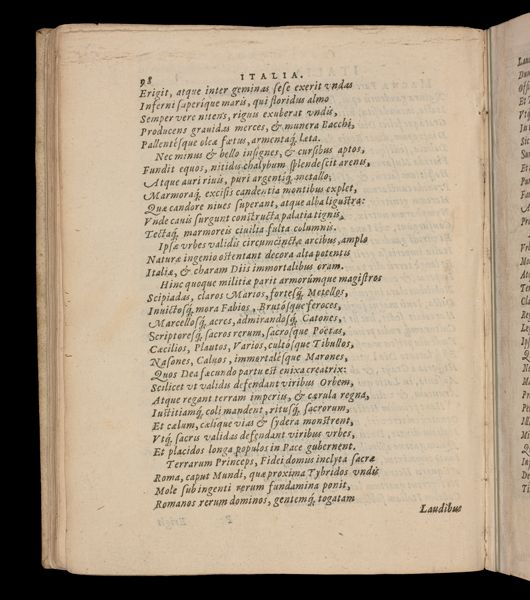 98 ITALIA.
Erigit, atque inter geminas sese exerit vndas
Inferni superique maris, qui floridus almo
Semper vere nitens, riguis exuberat vndis,
Producens grauidas merces, & munera Bacchi,
Pallentésque oleæ fœtus, armentaq́; læta.
Nec minus & bello insignes, & cursibus aptos,
Fundit equos, nitidis chalybum splendescit arenis,
Atque auri riuis, puri argentiq́; metallo;
Marmoraq́; excisis candentia montibus explet,
Quæ candore niues superant, atque alba ligustra:
Vnde cauis surgunt constructa palatia tignis,
Tectaq́; marmoreis ciuilia fulta columnis.
Ipsæ vrbes validis circumcinctæ arcibus, amplo
Naturæ ingenio ostentant decora alta potentis
Italiæ, & charam Diis immortalibus oram.
Hinc quoque militiæ parit armorúmque magistros
Scipiadas, claros Marios, fortesq́; Metellos,
Inuictosq́; mora Fabios, Brutósque feroces,
Marcellosq́; acres, admirandosq́; Catones,
Scriptoresq́; sacros rerum, sacrosque Poëtas,
Cæcilios, Plautos, Varios, cultósque Tibullos,
Nasones, Caluos, immortalésque Marones,
Quos Dea fæcundo partu est enixa creatrix:
Scilicet vt validis defendant viribus Orbem,
Atque regant terram imperiis, & cærula regna,
Iustitiamq́; coli mandent, ritusq́; sacrorum,
Et cælum, cælique vias & sydera monstrent,
Vtq́; sacris validas defendant viribus vrbes,
Et placidos longa populos in Pace gubernent.
Terrarum Princeps, Fidei domus inclyta sacræ
Roma, caput Mundi, quæ proxima Tybridos vndis
Mole sub ingenti rerum fundamina ponit,
Romanos rerum dominos, gentemq́; togatam
Laudibus